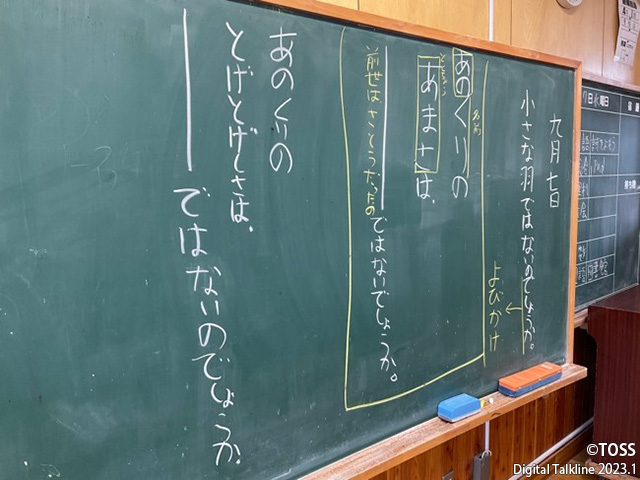 九月七日
小さな羽ではないのでしょうか。
よびかけ
名前
あのくりの
あまさは、
前世はさとうだったのではないでしょうか。
あのくりの
とげとげしさは、
ではないのでしょうか。
©TOSS
Digital Talkline 2023.1